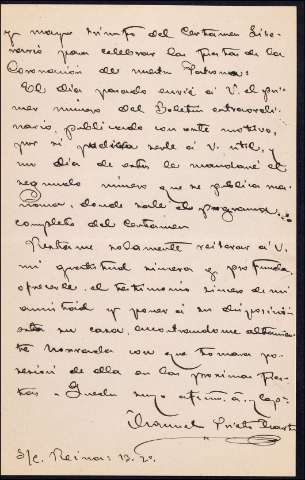 y mayor triunfo del Certamen Lite-
rario para celebrar las fiestas de la
Coronación de nuestra Patrona:
El día pasado envié á V. el pri-
mer número del Boletín extraordi-
nario, publicado con este motivo,
por si pudiera serle á V. útil, y
un día de estos le mandaré el
segundo número que se publica ma-
ñana, donde sale el programa
completo del Certamen
Réstame solamente reiterar á V.
mi gratitud sincera y profunda,
ofrecerle el testimonio sincero de mi
amistad y poner á su disposición
esta su casa, encontrándome altamen-
te honrado con que tomara po-
sesión de ella en las próximas fies-
tas. Queda suyo afmo. a. y cap.
Manuel Prieto
S/c. Reina: 13. 2º.